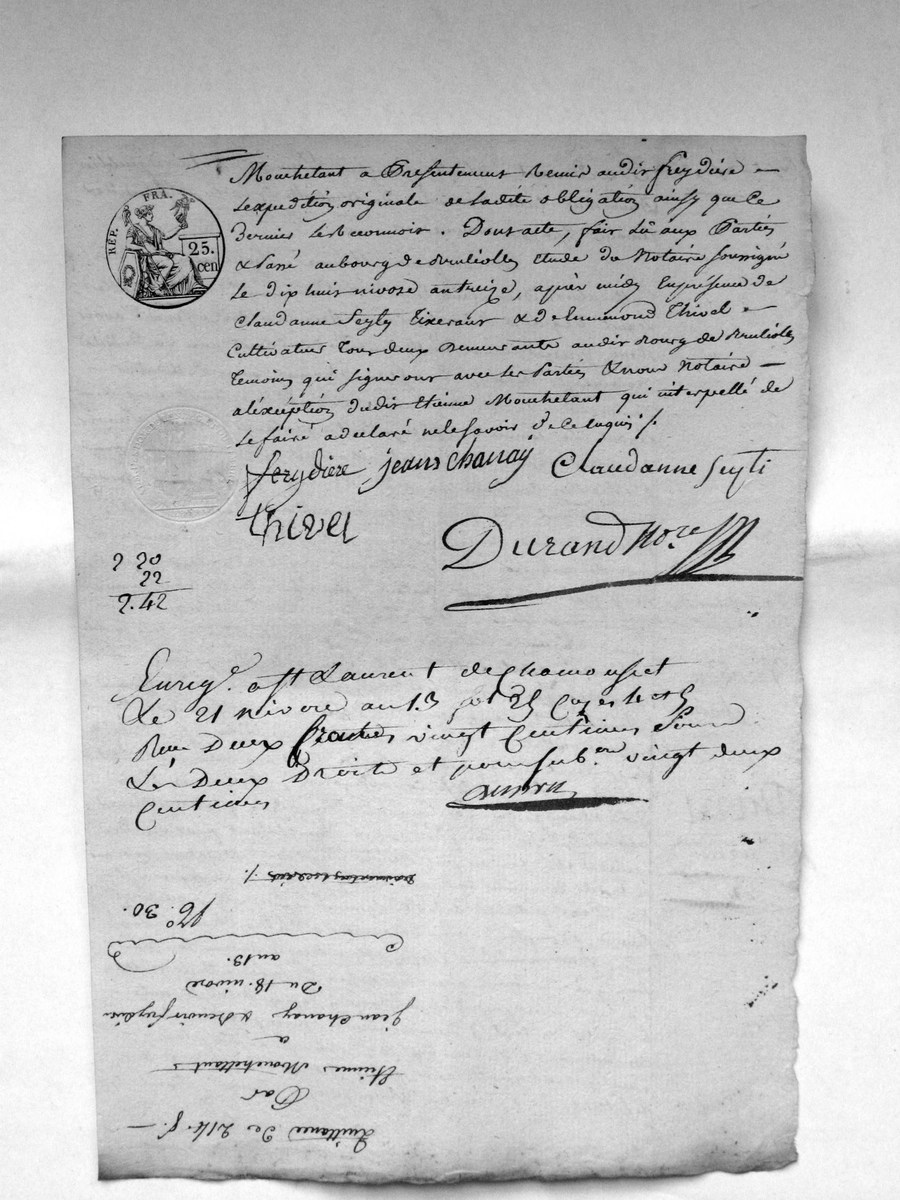 RÉP. FRA.
25.
cen
Mouchetant a Presentement Remis audit freydière
L'expedition originale de ladite obligation ainsy que ce
Dernier le Reconnois. Dont acte, fait Lû aux Parties
& Passé au bourg de Brulioles étude du Notaire soussigné
Le dix huit nivose an treize, après midy En presence de
Claudanne Seyty Tixerant & d'Ennemond Thivel
Cultivateur Tous deux Demeurants audit Bourg de Brulioles
Temoins qui signeront avec les Parties & nous Notaire
a l'éxcéption dudit Etienne Mouchetant qui interpellé de
Le faire a declaré ne le savoir de ce enquis
freydiere jean Chanay Claudanne Seyti
thivel
Durand Nore
2 20
22
2.42
Enregé. a St Laurent de Chamousset
Le 21 nivose an 13 25
Reçu Deux francs vingt Centimes pour
Les Deux Droits et pour subon. vingt deux
Centimes
N° 30.
Quittance De 214 f.
Par
Etienne Mouchettant
a
jean Chanay & Benoit freydiere
Du 18. nivose
an 13.